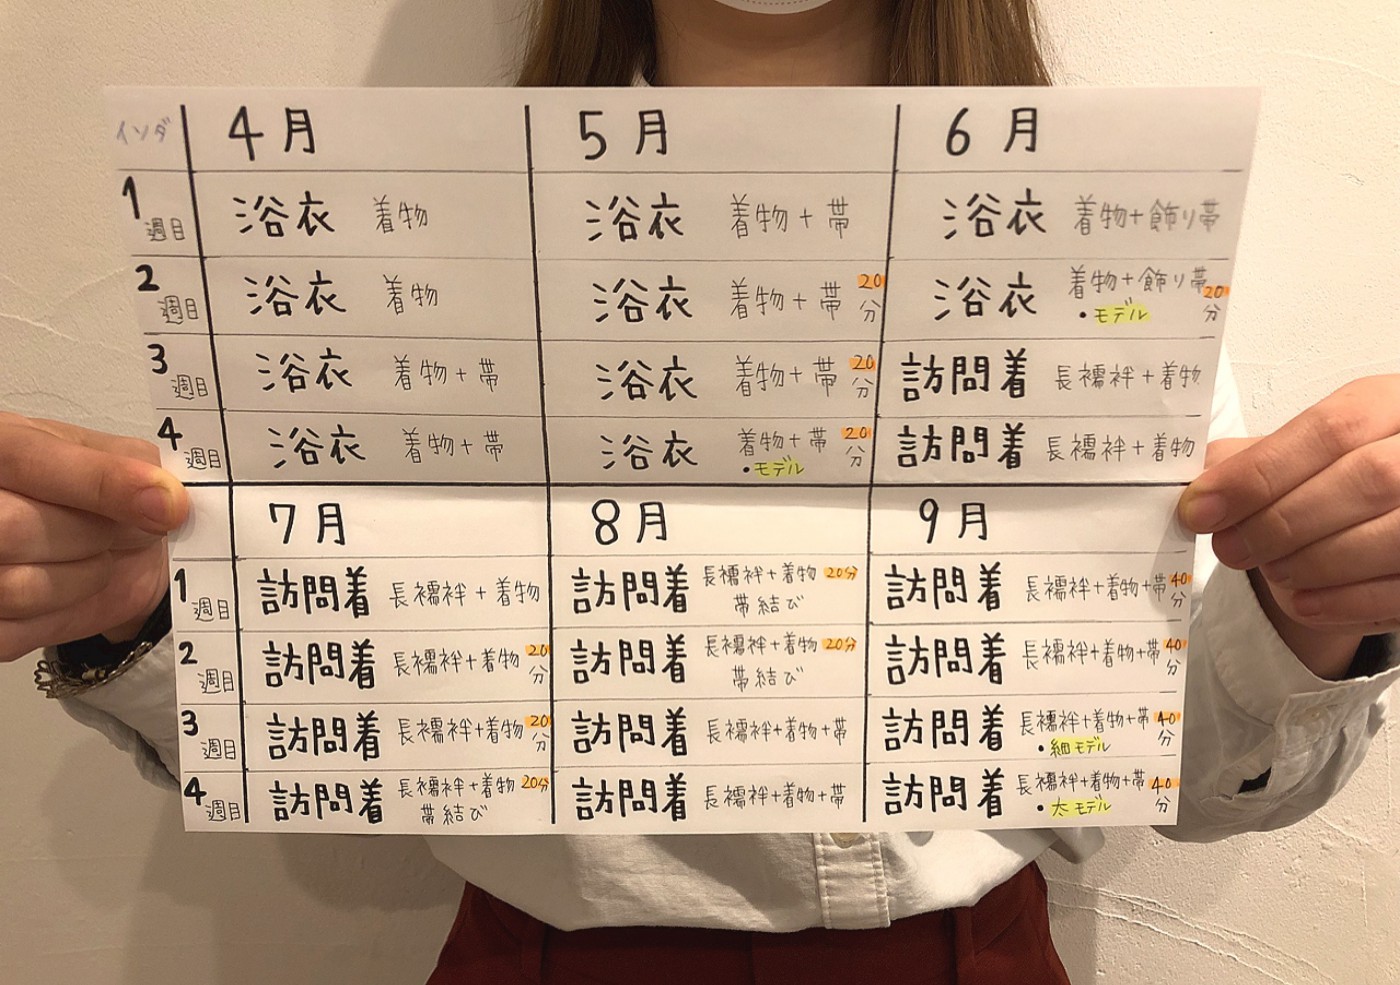 インダ 4月 5月 6月
1週目 浴衣 着物 浴衣 着物+帯 浴衣 着物+飾り帯
2週目 浴衣 着物 浴衣 着物+帯 20分 浴衣 着物+飾り帯 20分
・モデル
3週目 浴衣 着物+帯 浴衣 着物+帯 20分 訪問着 長襦袢+着物
4週目 浴衣 着物+帯 浴衣 着物+帯 20分 訪問着 長襦袢+着物
・モデル
7月 8月 9月
1週目 訪問着 長襦袢+着物 訪問着 長襦袢+着物 20分 訪問着 長襦袢+着物+帯 40分
帯結び
2週目 訪問着 長襦袢+着物 20分 訪問着 長襦袢+着物 20分 訪問着 長襦袢+着物+帯 40分
帯結び
3週目 訪問着 長襦袢+着物 20分 訪問着 長襦袢+着物+帯 訪問着 長襦袢+着物+帯 40分
・細モデル
4週目 訪問着 長襦袢+着物 20分 訪問着 長襦袢+着物+帯 訪問着 長襦袢+着物+帯 40分
帯結び ・太モデル